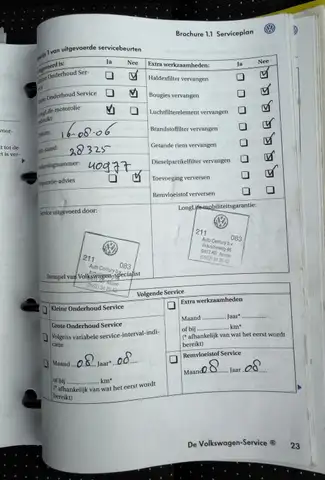 Brochure 1.1 Serviceplan
van uitgevoerde servicebeurten
Ja Nee
Extra werkzaamheden: Ja Nee
Onderhoud Ser-
Haldexfilter vervangen
Onderhoud Service
Bougies vervangen
Luchtfilterelement vervangen
16-08-06
Brandstoffilter vervangen
28325
Getande riem vervangen
40977
Dieselpartikelfilter vervangen
Toevoeging verversen
Remvloeistof verversen
uitgevoerd door:
LongLife mobiliteitsgarantie:
211 083
211 083
Volkswagen-specialist
Volgende Service
Kleine Onderhoud Service
Extra werkzaamheden
Grote Onderhoud Service
Maand Jaar*
Volgens variabele service-interval-indi-
catie
of bij km*
(* afhankelijk van wat het eerst wordt
bereikt)
Maand 08 Jaar* 08
Remvloeistof Service
of bij km*
Maand 08 Jaar 08
(* afhankelijk van wat het eerst wordt
bereikt)
De Volkswagen-Service ® 23